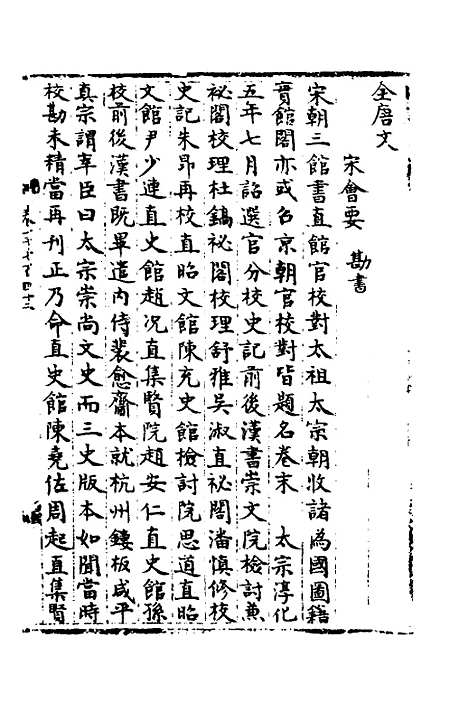 全唐文
宋會要 勘書
宋朝三館書直館官校對太祖太宗朝收諸為國圖籍
實館閣亦或召京朝官校對皆題名卷末 太宗淳化
五年七月詔選官分校史記前後漢書崇文院檢討兼
祕閣校理杜鎬祕閣校理舒雅吳淑直祕閣潘慎修校
史記朱昂再校直昭文館陳充史館檢討阮思道直昭
文館尹少連直史館趙況直集賢院趙安仁直史館孫
校前後漢書既畢遣內侍裴愈齎本就杭州鏤板咸平
真宗謂宰臣曰太宗崇尚文史而三史版本如聞當時
校勘未精當再刊正乃命直史館陳堯佐周起直集賢
卷一千七百四十三